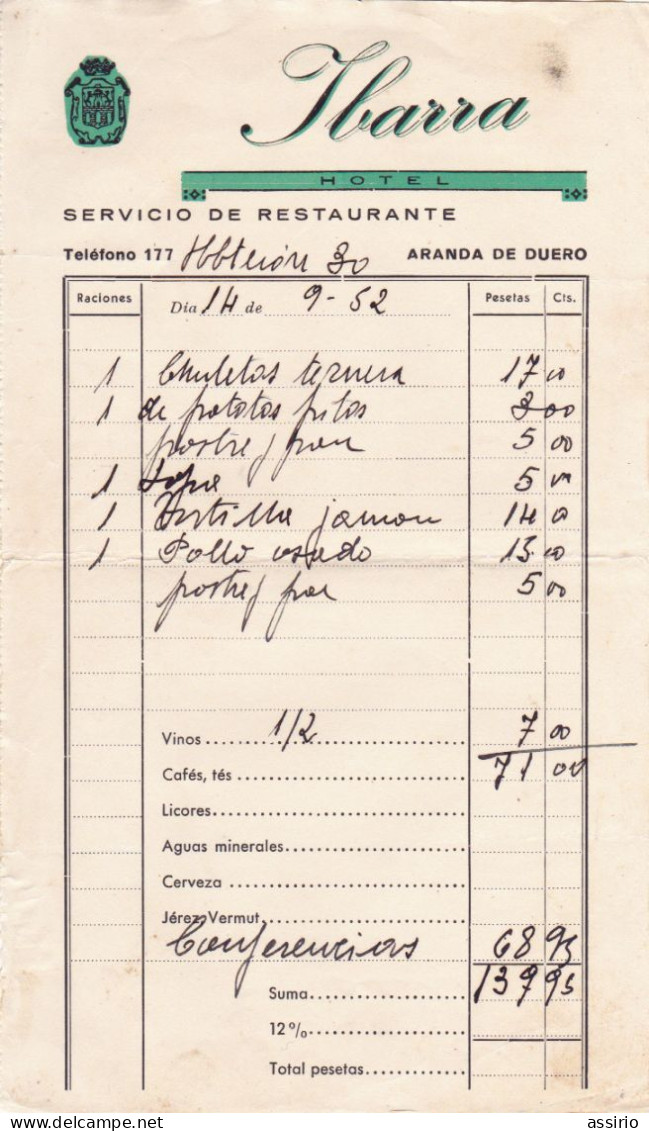 Ibarra
HOTEL
SERVICIO DE RESTAURANTE
Teléfono 177 30 ARANDA DE DUERO
Raciones Día 14 de 9-52 Pesetas Cts.
1 Chuletas ternera 17 00
1 de patatas fritas 3 00
postre y pan 5 00
1 Sopa 5 00
1 Tortilla jamon 14 00
1 Pollo asado 15 00
postre y pan 5 00
Vinos 1/2 7 00
Cafés, tés 71 00
Licores
Aguas minerales
Cerveza
Jérez, Vermut
Conferencias 68 95
Suma 139 95
12%
Total pesetas
assirio delcampe.net